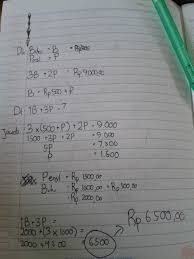 Buku = B
Pensil = P
3B + 2P = Rp 9000,00
B = Rp 500 + P
1B + 3P = ?
Jawab 3 × (500 + P) + 2P = 9.000
1500 + 3P + 2P = 9.000
5P = 7.500
P = 1.500
Pensil = Rp 1500,00
Buku = Rp 1500,00 + Rp 500,00
= Rp 2000,00
1B + 3P =
2000 + (3 × 1500) =
2000 + 4500 = 6500
Rp 6.500,00